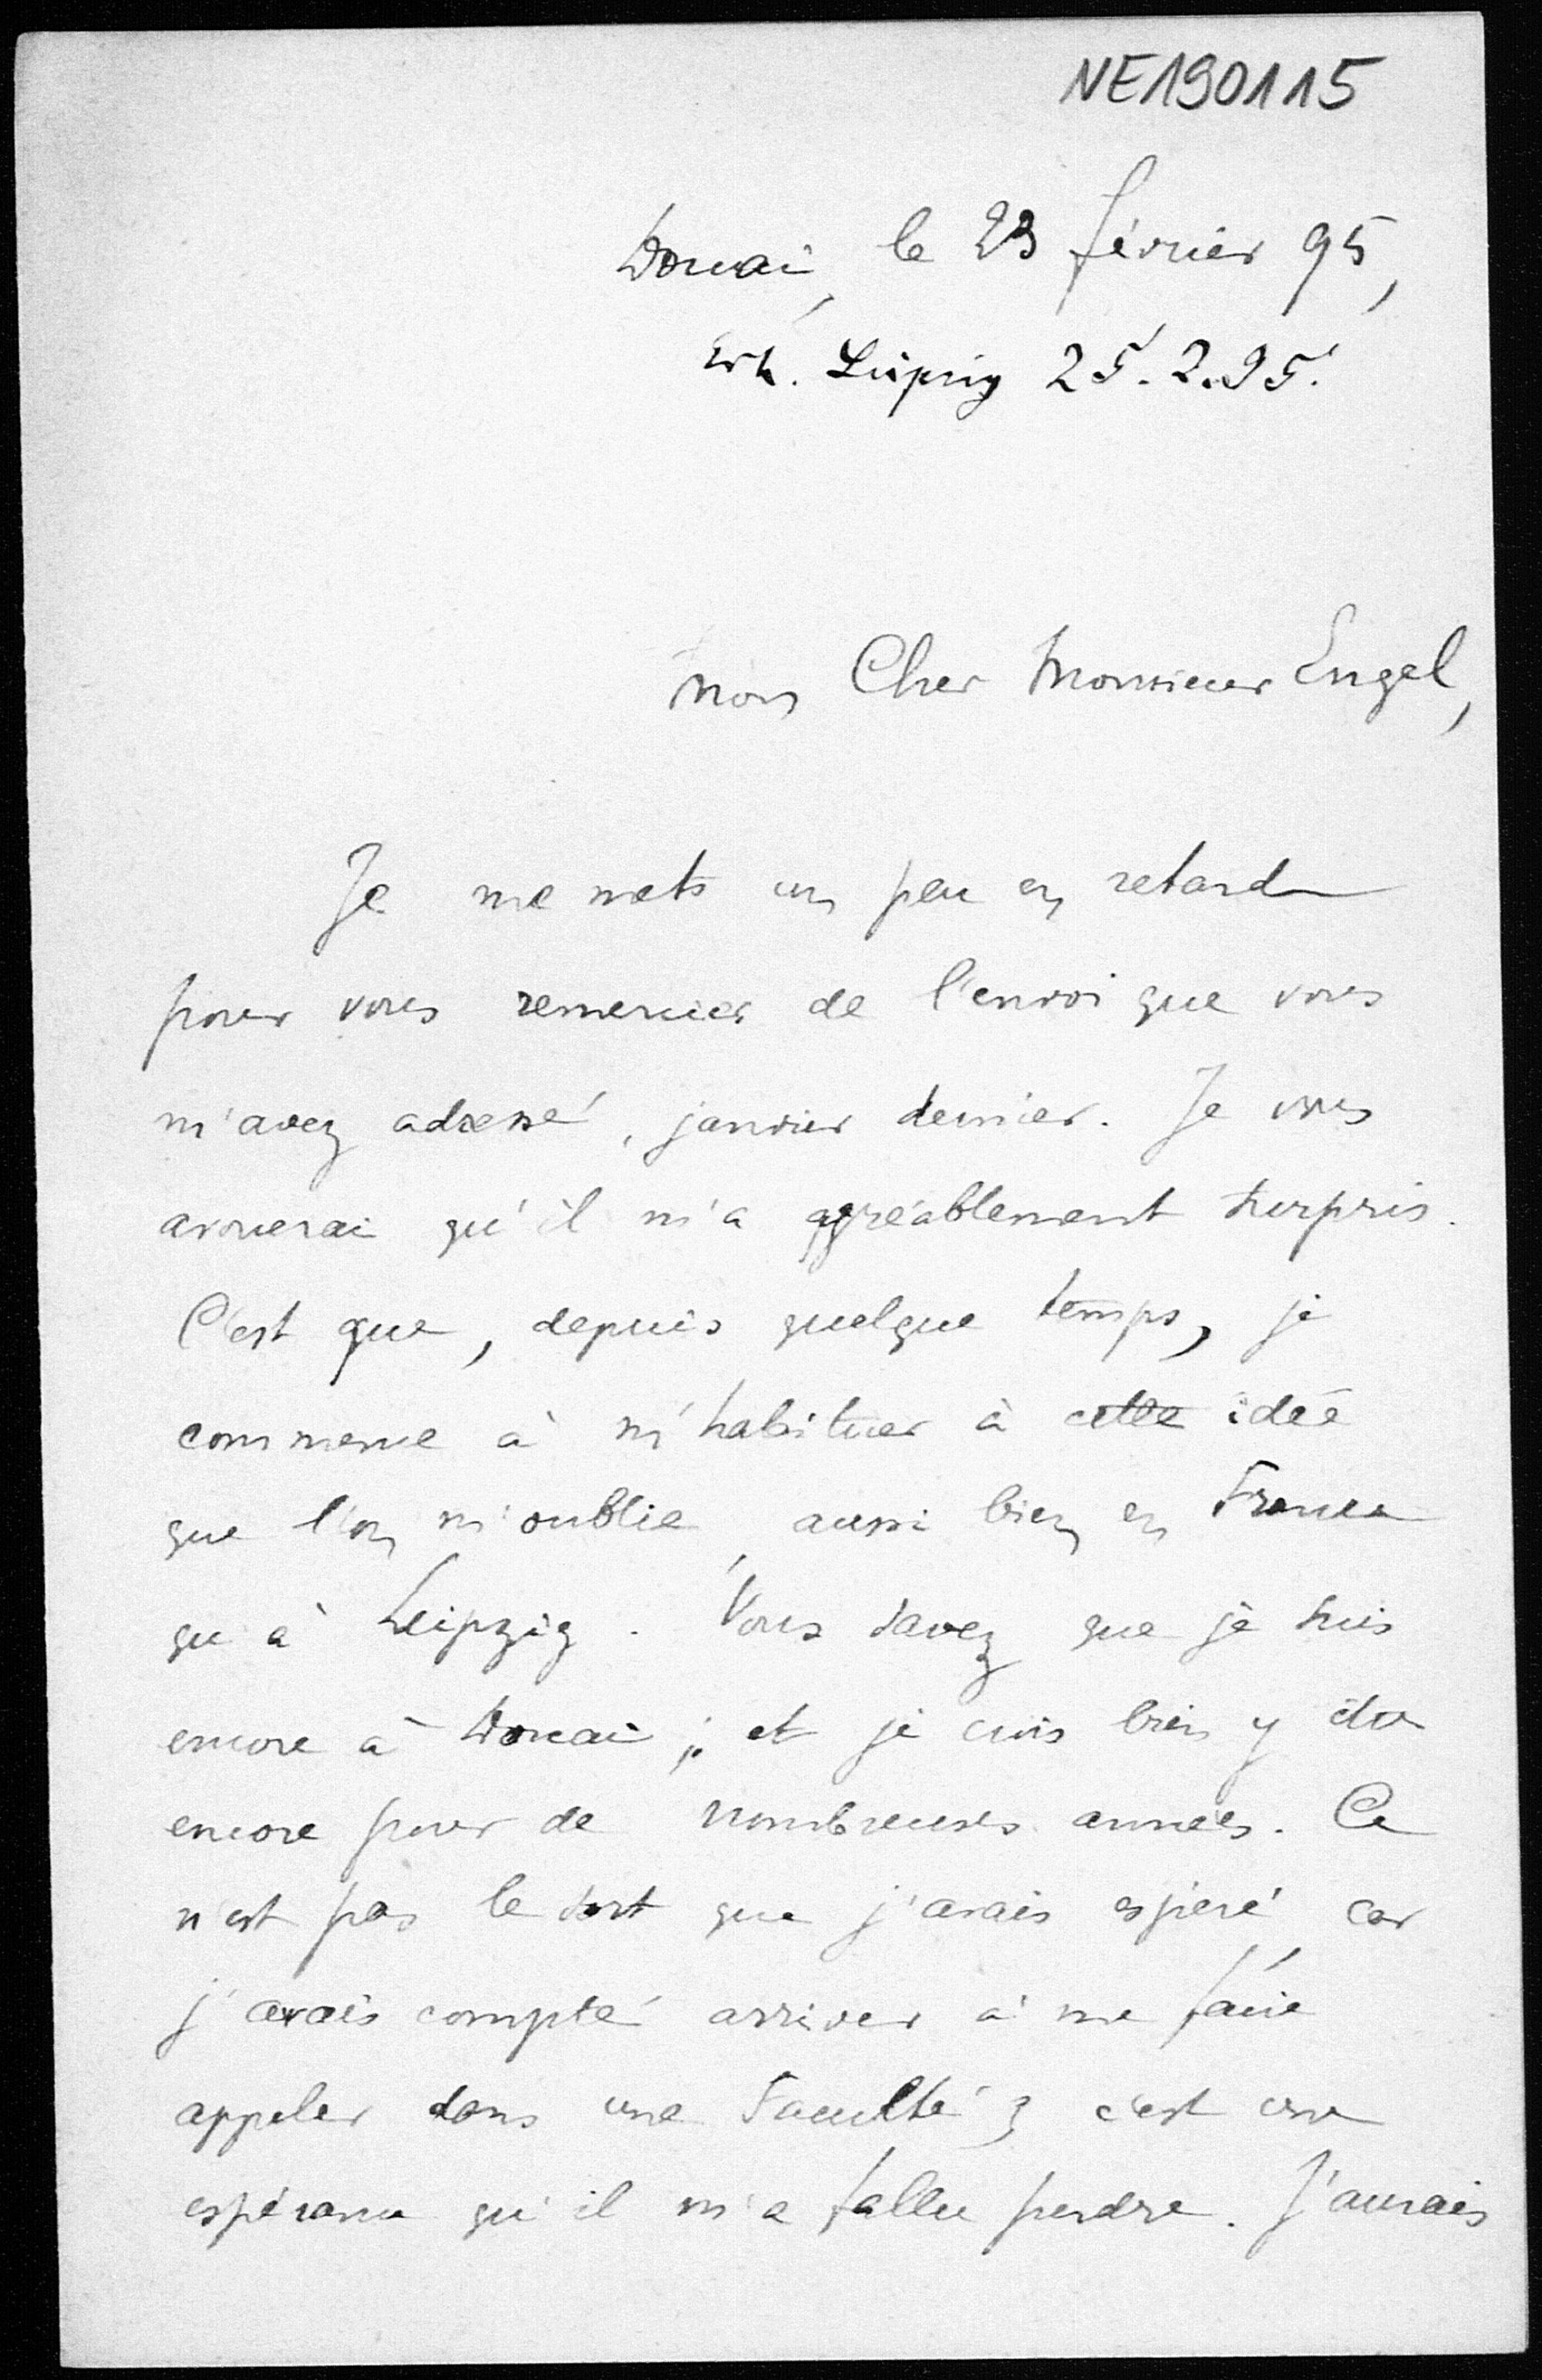 NE190115
Douai, le 23 février 95,
Erh. Leipzig 25.2.95.
Mon Cher Monsieur Engel,
Je me mets un peu en retard
pour vous remercier de l'envoi que vous
m'avez adressé, janvier dernier. Je vous
avouerai qu'il m'a agréablement surpris.
C'est que, depuis quelque temps, je
commence à m'habituer à cette idée
que l'on m'oublie, aussi bien en France
qu'à Leipzig. Vous savez que je suis
encore à Douai; et je crois bien y être
encore pour de nombreuses années. Ce
n'est pas le sort que j'avais espéré, car
j'avais compté arriver à me faire
appeler dans une Faculté; c'est une
espérance qu'il m'a fallu perdre. J'aurais